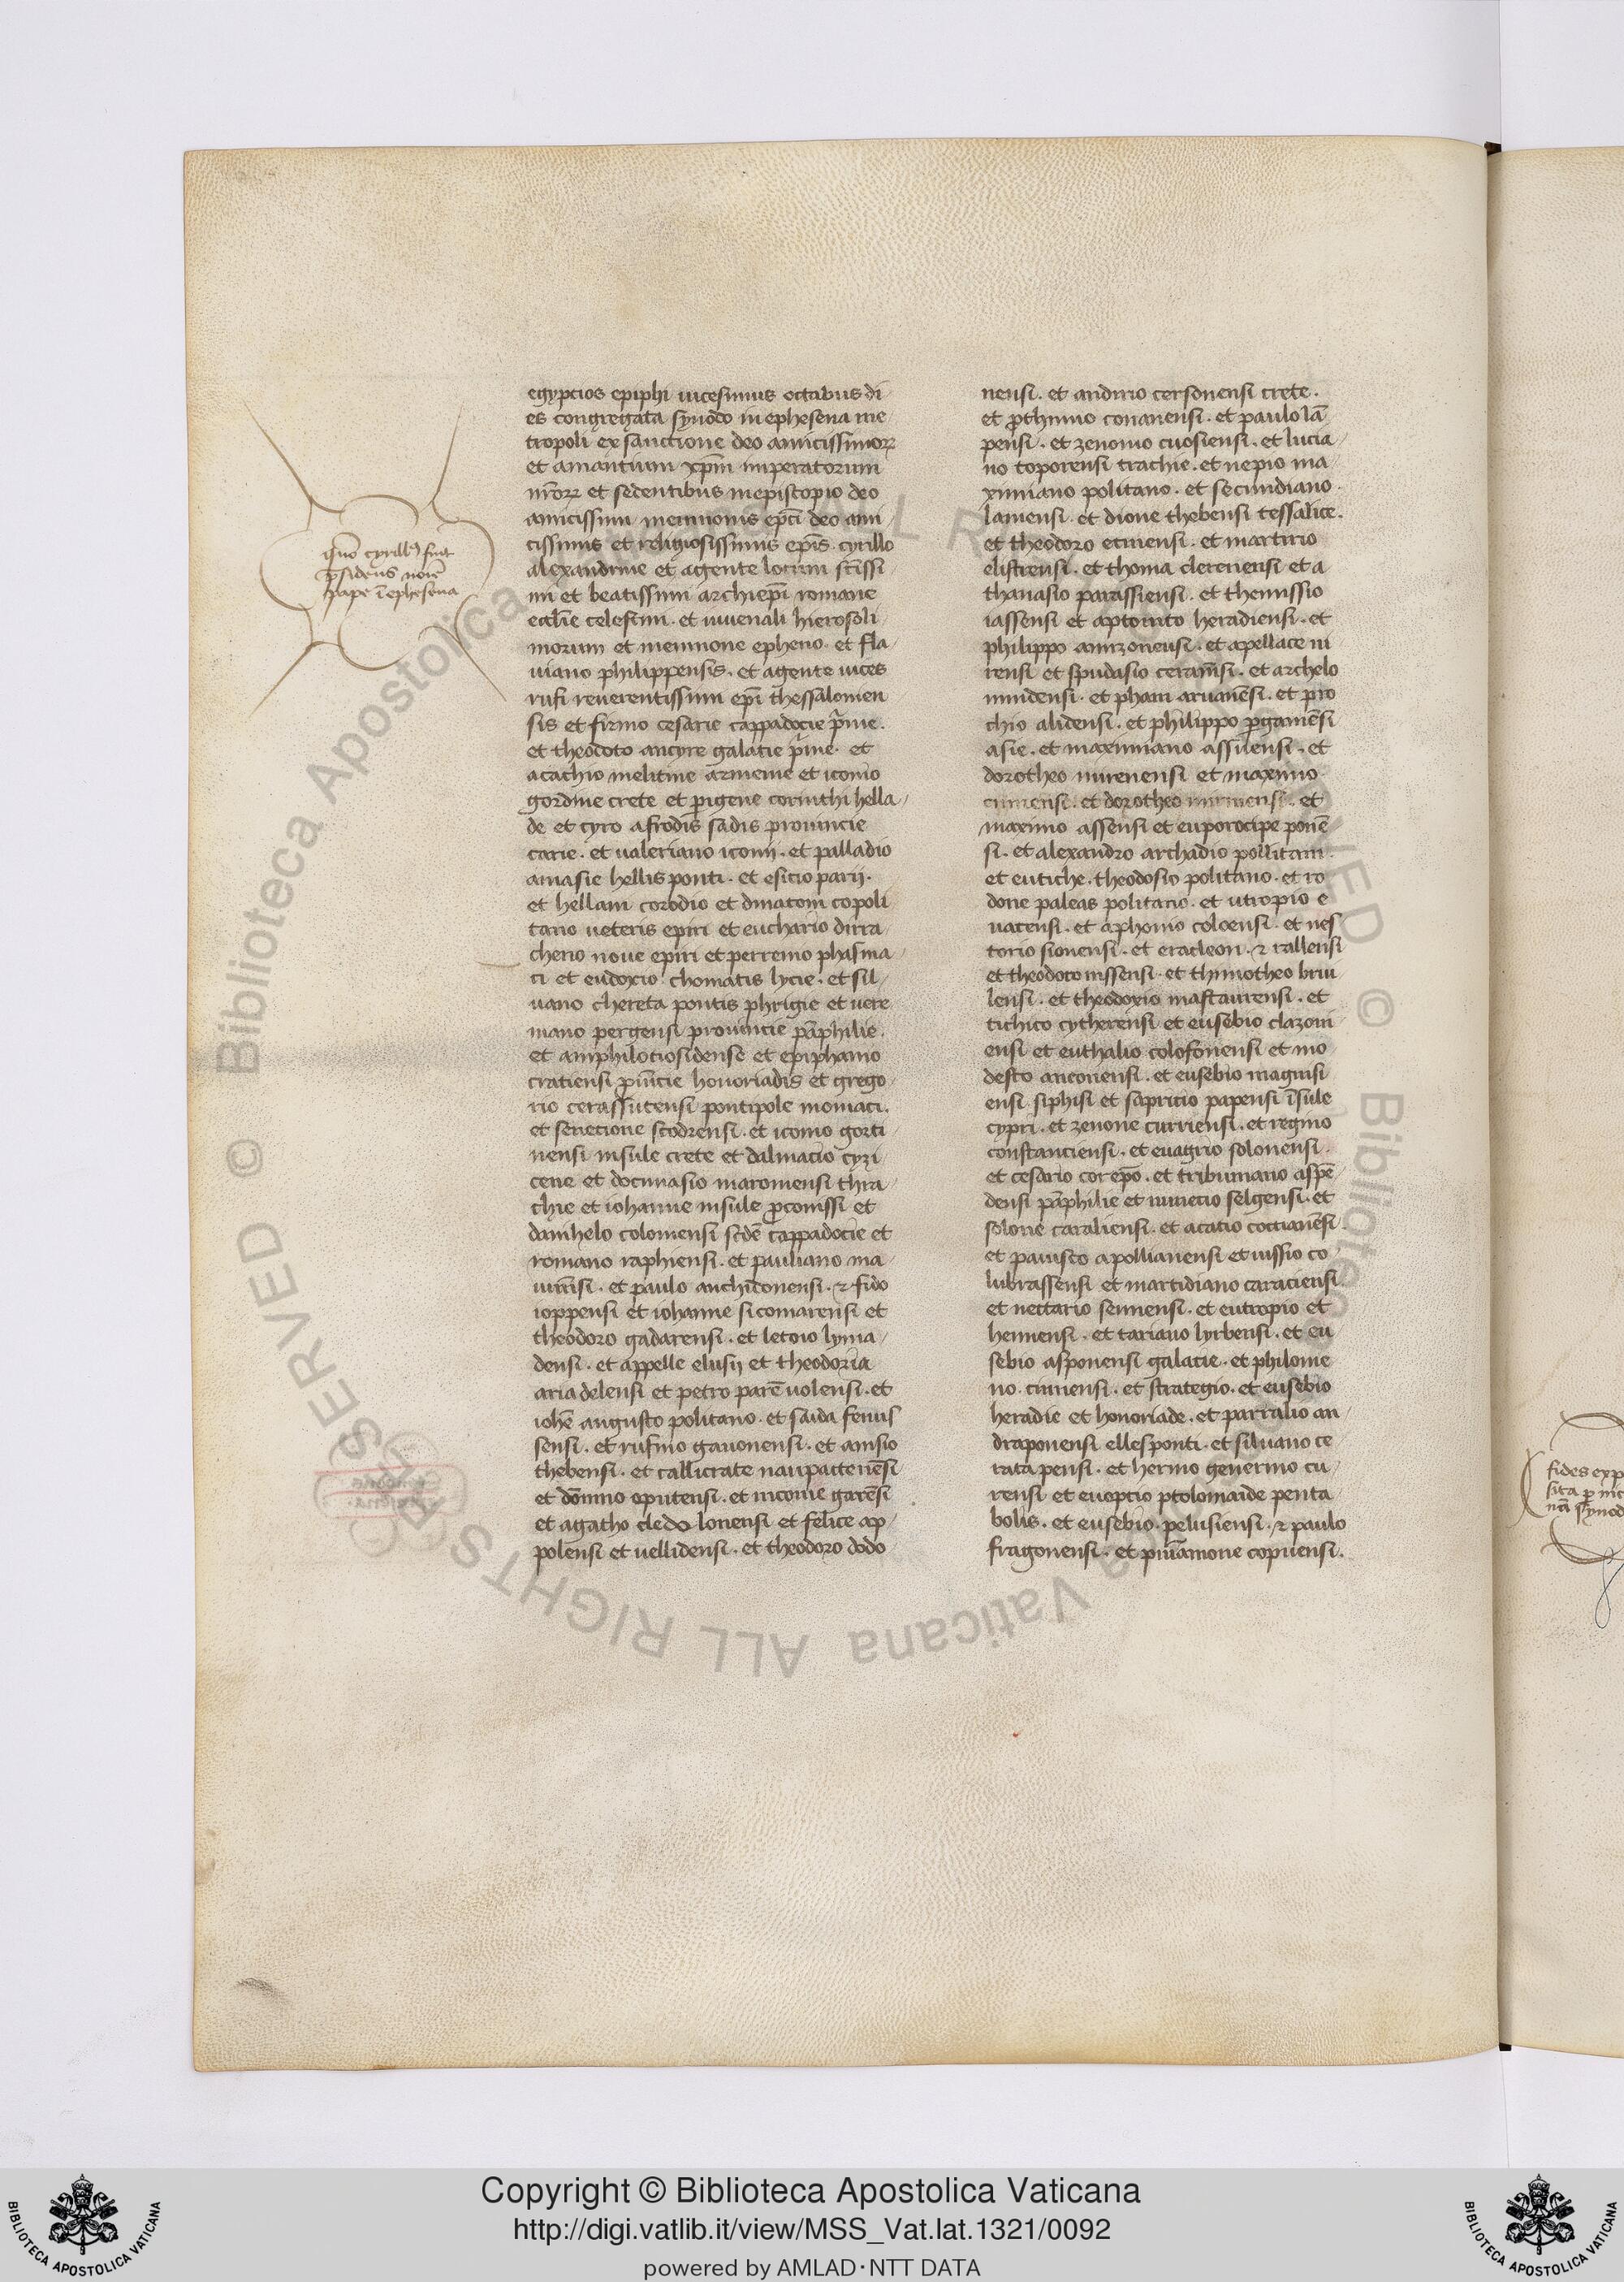 quo cyrillus fuit
p̄sidens noīe
pape ī ephesena
egyptios epiphi uicesimus octabus di
es congregata synodo in ephesena me
tropoli ex sanctione deo amicissimoꝝ
et amantium xp̄m imperatorum
nr̄oꝝ et sedentibus in episcopio deo
amicissimi memnonis ep̄ci deo ami
cissimis et religiosissimis ep̄is. cyrillo
alexandrine et agente locum sc̄issi
mi et beatissimi archiep̄i romane
eccl̄ie celestini. et iuuenali hierosoli
morum et memnone epheno. et fla
uiano philippensis. et agente uices
rufi reuerentissimi ep̄i thessalonien
sis et firmo cesarie cappadocie p̄me.
et theodoto ancyre galatie p̄me. et
acachio melitine armenie et iconio
gordine crete et perigene corinthi hella
de et cyro afrodis sadis prouincie
carie. et ualeriano iconij. et palladio
amasie hellis ponti. et esicio parij.
et hellani corodio et dinatoni copoli
tano ueteris epiri et euchario dirra
cheno noue epiri et perremo phasma
ti et eudoxio chomatis lycie. et sil
uano chereta pontis phrigie et uere
niano pergensi prouincie pāphilie.
et amphilociosidense et epiphanio
cratiensi pruīcie honoriadis et grego
rio cerassutensi pontipole moniaci.
et senecione scodrensi. et iconio gorti
nensi insule crete et dalmacio cyzi
cene et docimasio maroniensi thra
chie et iohanne insule proconissi et
damhelo coloniensi sc̄de cappadocie et
romano raphiensi. et pauliano ma
iumsi. et paulo anchitonensi. et fido
ioppensi et iohanne sicomarensi et
theodoro gadarensi. et letoio lyma
densi. et appelle elusij et theodoria
aria delensi et petro parēuolensi. et
iohē augusto politano. et saida fenus
sensi. et rufino gauonensi. et anisio
thebensi. et callicrate naupactenēsi
et dōmno oputensi. et nicome garēsi
et agatho cledo lonensi et felice ap
polensi et uellidensi. et theodoro dodo
nensi. et andirio cersonensi crete.
et prothimo conanensi. et paulo lā
pensi. et zenomo cuosiensi. et lucia
no toporensi trachie. et nepio ma
ximiano politano. et secundiano
lamensi. et dione thebensi tessalice.
et theodoro ecinensi. et martirio
elistrensi. et thoma clerenensi et a
thanasio parassiensi. et themissio
iassensi et aptonito heradiensi. et
philippo amizonensi. et apellace ni
rensi et spudasio ceramsi. et archelo
mindensi. et pham aruanēsi. et pro
chio alidensi. et philippo pgamēsi
asie. et maximiano assuensi. et
dorotheo mirenensi et maximo
cumensi. et dorotheo mirinensi. et
maximo assensi et euporocipe ponē
si. et alexandro archadio pollitam.
et eutiche. theodosio politano. et ro
done paleas politano. et utropio e
uacensi. et aphonio coloensi. et nes
torio sionensi. et eracleon. et rallensi
et theodoto nissensi. et thimotheo briu
lensi. et theodoxio mastaurensi. et
tichico cytherensi et eusebio clazom
ensi et euthalio colofonensi et mo
desto anconensi. et eusebio magnisi
ensi siphisi et sapricio papensi īsule
cypri. et zenone curriensi. et regino
constanciensi. et euagrio solonensi.
et cesario corepō. et tribuniano aspē
densi pāphilie et nunecio selgensi. et
solone caraliensi. et acatio coccianēsi.
et pauisto apollianensi et uissio co
lubrassensi et martidiano caraciensi
et nectario sennensi. et eutropio et
hennensi. et tariano lyrbensi. et eu
sebio asponensi galatie. et philome
no. cimensi. et strategio. et eusebio
heradie et honoriade. et parralio an
draponensi ellesponti. et siluano ce
rata pensi. et hermo genermo cu
rensi et euopcio ptolomaide penta
bolis. et eusebio. pelusiensi. et paulo
fragonensi. et pinīamone copuensi.
fides exp
sita p nic
nā synod
Copyright © Biblioteca Apostolica Vaticana
http://digi.vatlib.it/view/MSS_Vat.lat.1321/0092
powered by AMLAD·NTT DATA
BIBLIOTECA APOSTOLICA VATICANA
BIBLIOTECA APOSTOLICA VATICANA